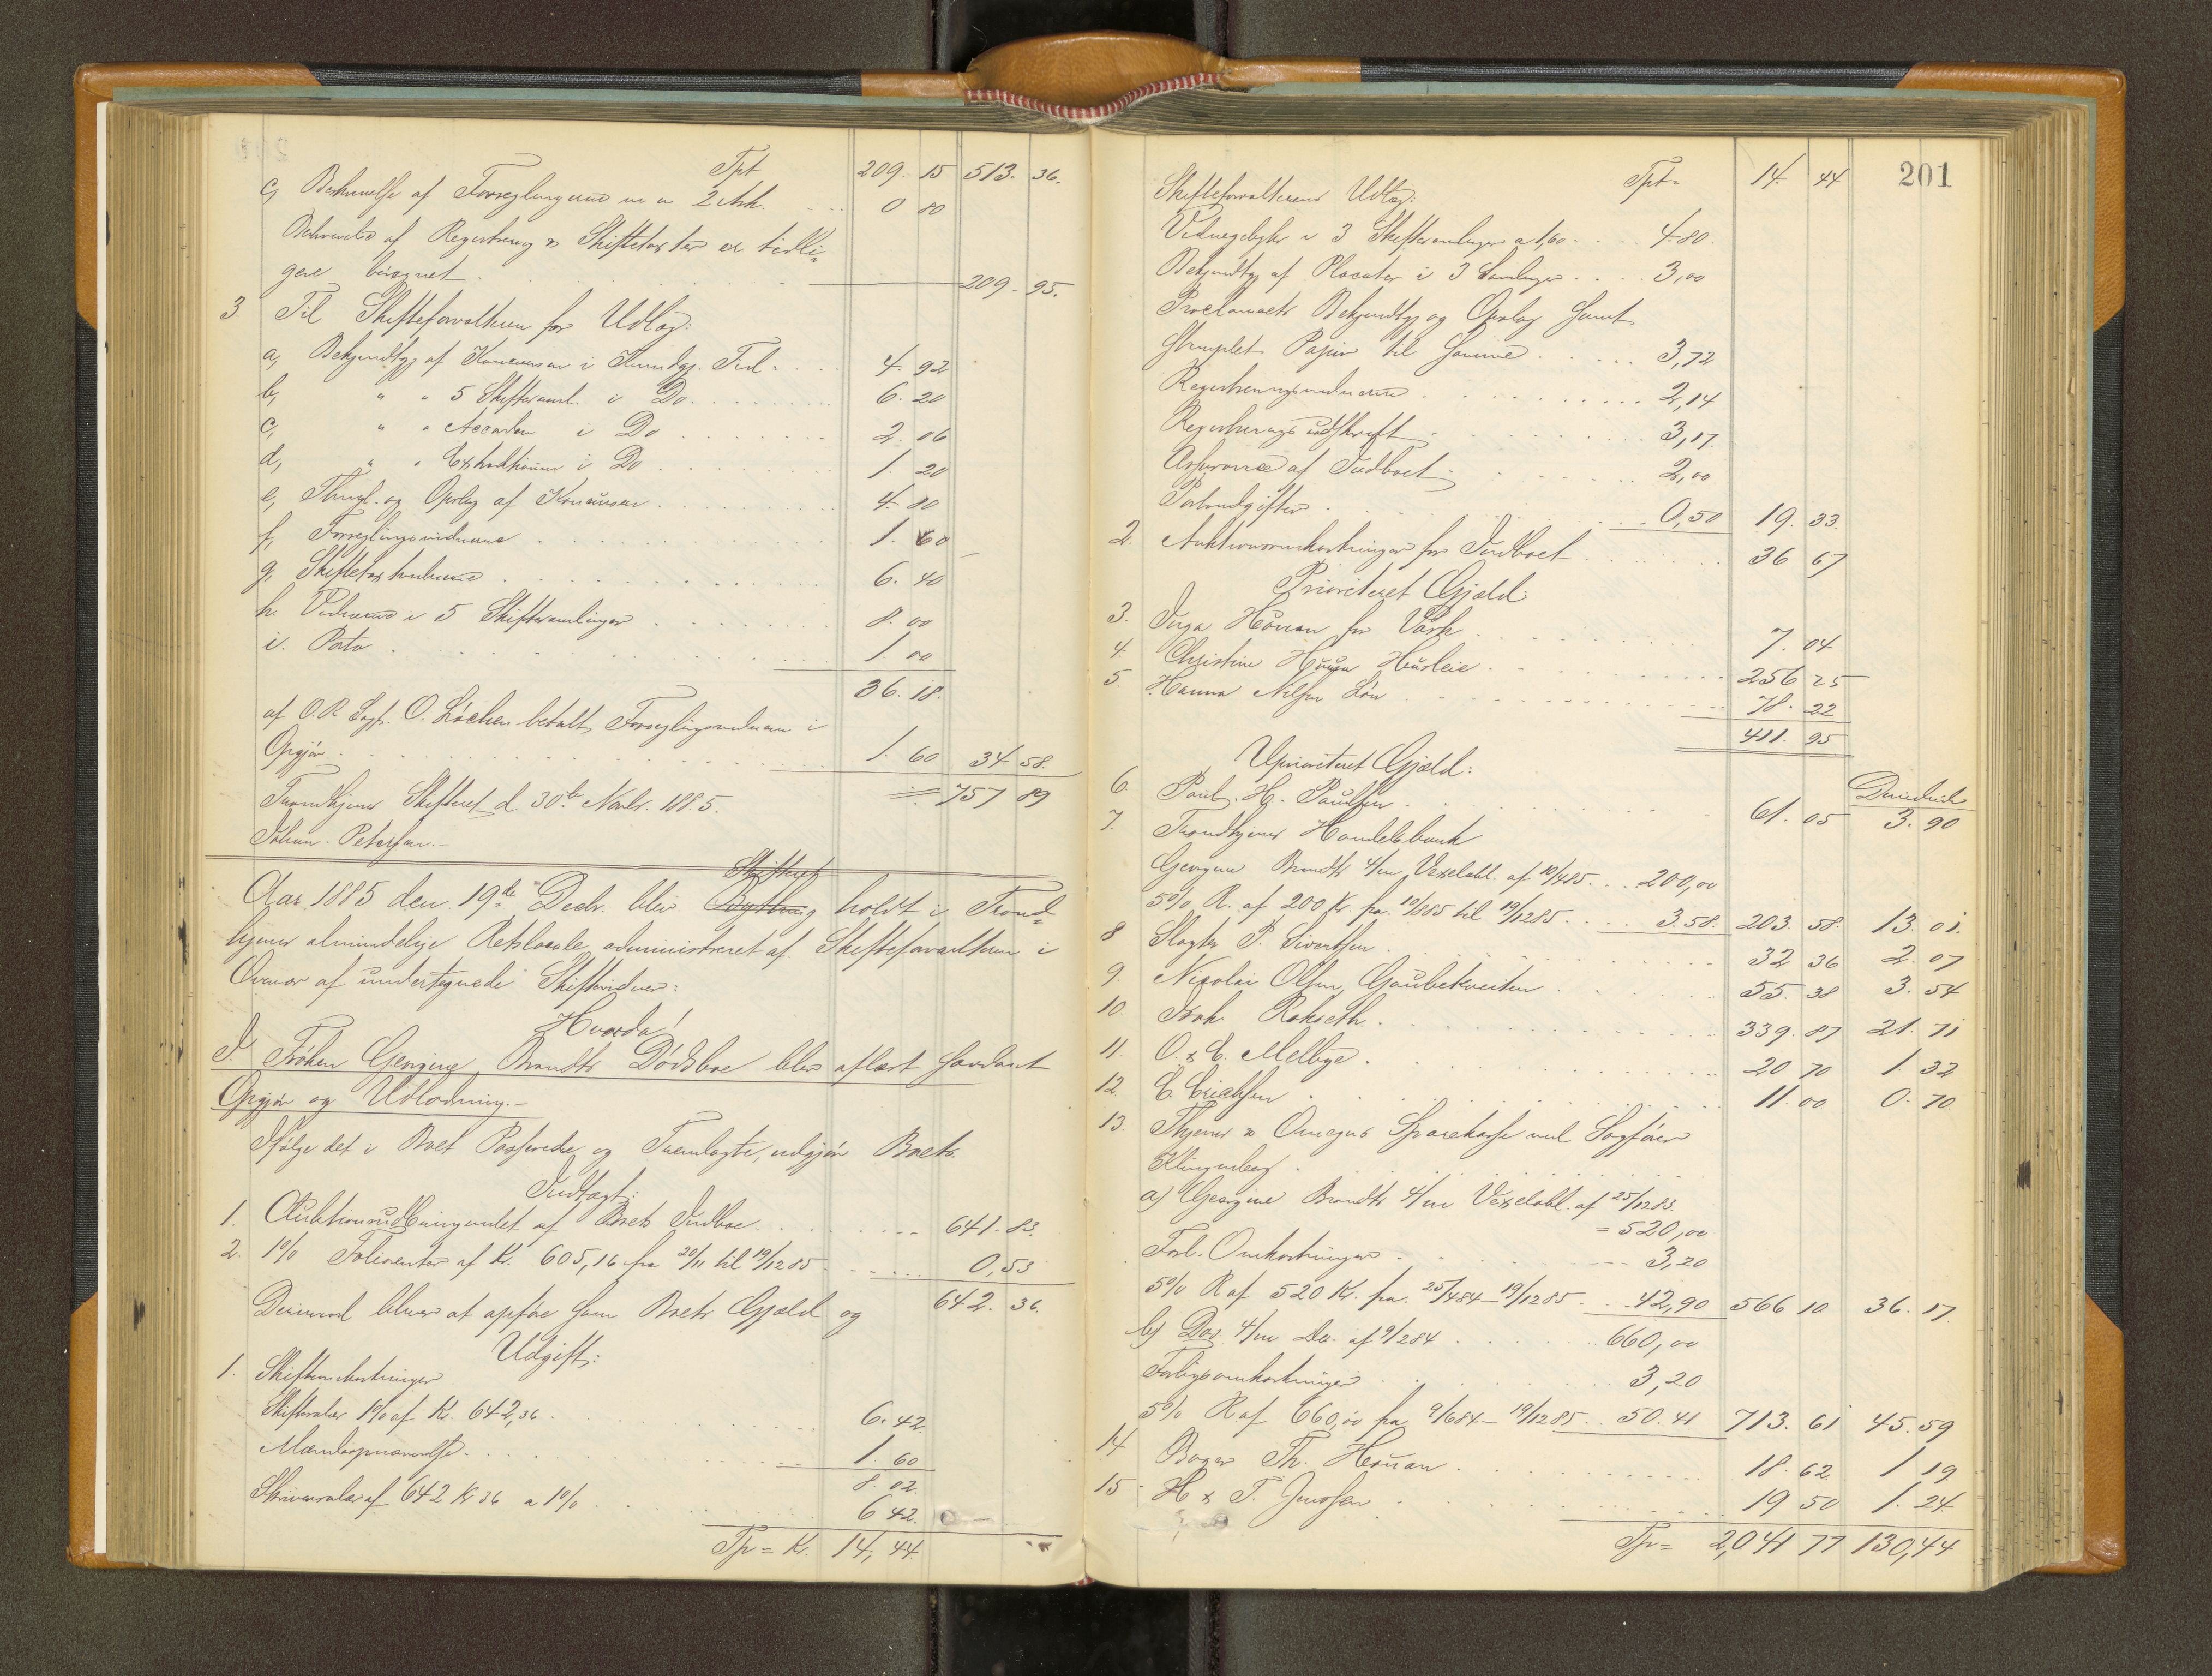 Tpt 209. 15 513. 36.
c, Beskrivelse af Forseglingerne m m 2 Ark. 0 80
Beskrivelse af Registrering & Skiftetaxter er tidli=
gere beregnet. 209. 95.
3. Til Skifteforvalteren for Udlæg:
a, Bekjendtgj. af Konkursen i Kundgj. Tid. 4. 92
b, " " 5 Skiftesaml. i Do. 6. 20
c, " " Accorden i Do 2. 06
d, " " Extraditionen i Do 1. 20
e, Thingl. og Opslag af Konkursen 4. 80
f, Forseglingsvidnerne 1. 60
g, Skiftetax 6. 40
h. Vidnerne i 5 Skiftesamlinger 8. 00
i. Porto 1. 00
36. 18.
af O.R. Sagf. O. Løchen betalt Forseglingsvidnerne i
Opgjør 1. 60 34 58.
757 89
Trondhjems Skifteret d 30te Novbr. 1885.
Johan Petersen.
Skifteret
Aar 1885 den 19de Decbr. blev holdt i Trond=
hjems almindelige Retslocale administreret af Skifteforvalteren i
Overvær af undertegnede Skiftevidner:
Hvorda!
I. Frøken Georgine Brandts Dødsbo blev aflæst saadant
Opgjør og Udlodning.
Ifølge det i Boet Passerede og Fremlagte, udgjør Boets
Indtægt:
1. Auktionsudbringendet af Boets Indboe 641. 83.
2. 1% Foliorenter af Kr. 605,16 fra 20/11 til 19/12 85 0,53
642. 36.
Derimod bliver at opføre som Boets Gjæld og
Udgift:
1. Skifteomkostninger
Skiftesalær 1% af Kr. 642,36 6. 42
Mændsopnævnelse 1. 60
8. 02
Skriversalær af 642 Kr 36 a 1% 6 42.
Tp = Kr. 14, 44.
201
Tpt= 14. 44
Skifteforvalterens Udlæg:
Vidnegebyhr i 3 Skiftesamlinger a 1,60 4.80.
Bekjendtgj. af Placater i 3 Samlinger 3,00
Proclamaets Bekjendtgj. og Opslag samt
stemplet Papir til samme 3,72
Registreringsvidnerne 2,14
Registreringsudskrift 3,17.
Assurance af Indboet 2,00
Portoudgifter 0,50 19. 33.
2. Auktionsomkostninger for Indboet 36 67
Prioriteret Gjæld:
3. Inga Houan for Vask 7. 04
4. Christine Houan Husleie 256 25
5. Hanna Nilsen Løn 78. 22
411. 95
Uprioriteret Gjæld:
Dividende
6. Paul. H. Paulsen 61. 05 3. 90
7. Trondhjems Handelsbank
Georgine Brandts 4/m Vexelobl. af 10/4 85 200,00
5% R. af 200 Kr. fra 10/8 85 til 19/12 85 3.58. 203. 58. 13. 01.
8 Slagter P. Sivertsen 32 36 2. 07
9. Nicolai Olsen Gaubekveiten 55. 38 3. 54
10. Isak Rokseth 339. 87 21. 71
11. O. & E. Melbye 20 70 1. 32
12. E. Erichsen 11. 00 0. 70
13. Thjems & Omegns Sparekasse ved Sagfører
Klingenberg
a) Georgine Brandts 4/m Vexelobl. af 25/12 83.
= 520,00
Forl. Omkostninger 3,20
5% R af 520 Kr. fra 25/4 84 – 19/12 85 42,90 566 10 36. 17.
b) Das. 4/m Do. af 9/2 84 660,00
Forligsomkostninger 3,20
5% R af 660,00 fra 9/6 84 – 19/12 85 50.41 713. 61 45. 59
14 Bager Th. Houan 18. 62 1 19
15. H & T. Jenssen 19 50 1. 24
Tp= 2,041 77 130,44